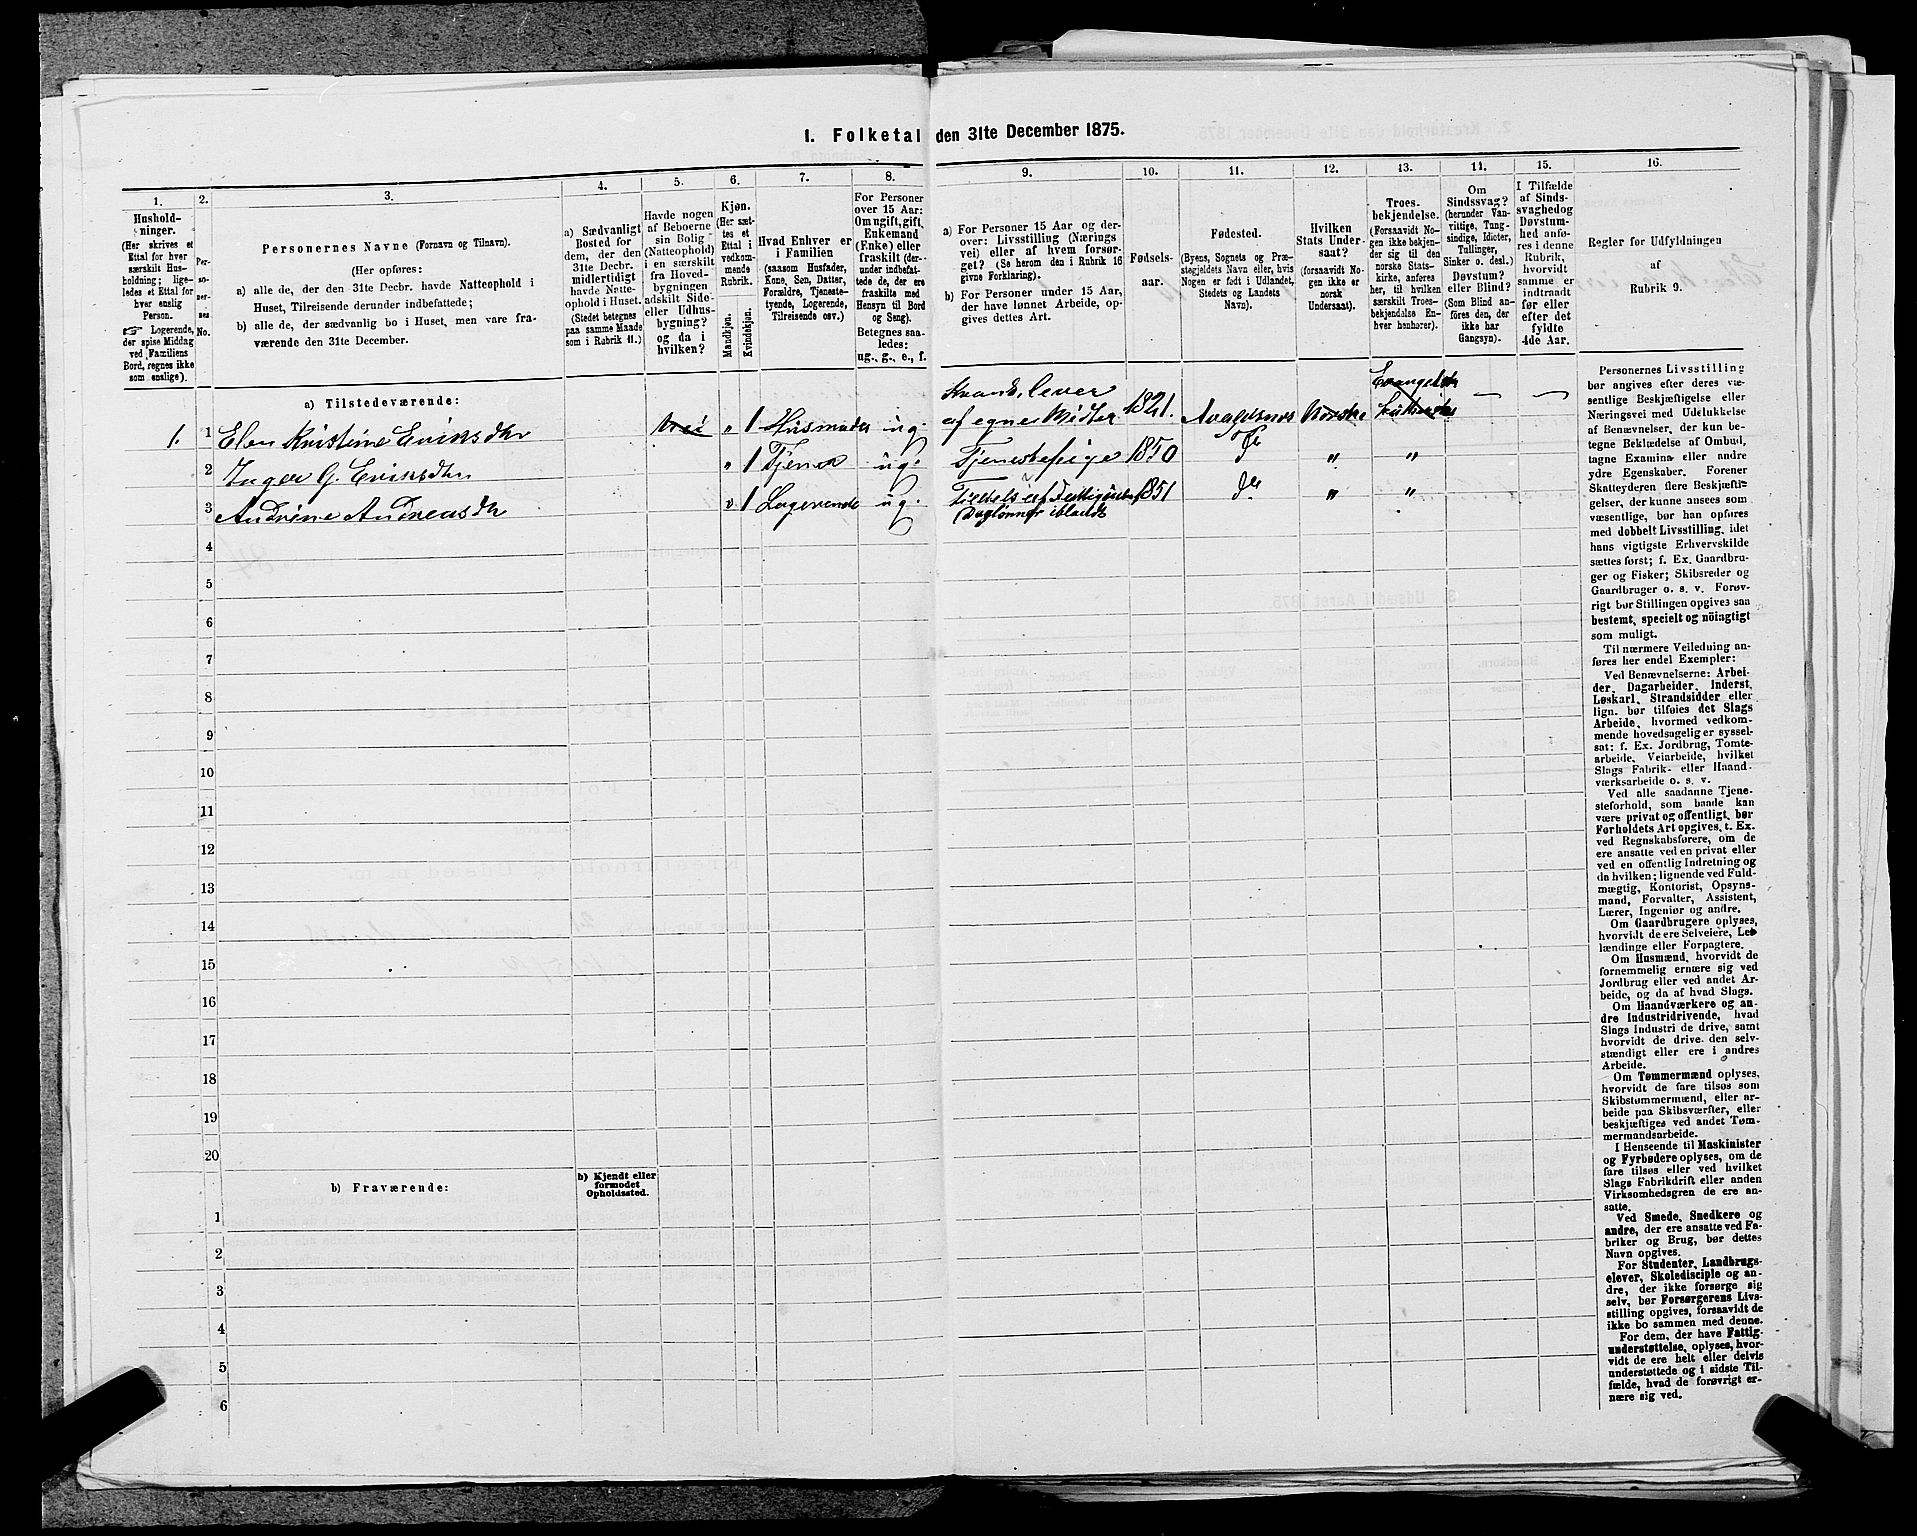 1. Folketal den 31te December 1875.
1. 2. 3. 4. 5. 6. 7. 8. 9. 10. 11. 12. 13. 14. 15. 16.
Hushold-
ninger.
(Her skrives et
Ettal for hver
særskilt Hus-
holdning; lige-
ledes et Ettal for
hver enslig
Person.
☞ Logerende,
der spise Middag
ved Familiens
Bord, regnes ikke
som enslige).
Per-
so-
ner-
ses
No.
Personernes Navne (Fornavn og Tilnavn).
(Her opføres:
a) alle de, der den 31te Decbr. havde Natteophold i
Huset, Tilreisende derunder indbefattede;
b) alle de, der sædvanlig bo i Huset, men vare fra-
værende den 31te December.
a) Sædvanligt
Bosted for
dem, der den
31te Decbr.
midlertidigt
havde Natte-
ophold i Huset.
(Stedet betegnes
paa samme Maade
som i Rubrik 11.)
Havde nogen
af Beboerne
sin Bolig
(Natteophold)
i en særskilt
fra Hoved-
bygningen
adskilt Side-
eller Udhus-
bygning?
og da i
hvilken?
Kjøn.
(Her sæt-
tes et
Ettal i
vedkom-
mende
Rubrik.
Mandkjøn.
Kvindekjøn.
Hvad Enhver er
i Familien
(saasom Husfader,
Kone, Søn, Datter,
Forældre, Tjeneste-
tyende, Logerende,
Tilreisende osv.)
For Personer
over 15 Aar:
Om ugift, gift,
Enkemand
(Enke) eller
fraskilt (der-
under indbefat-
tede de, der ere
fraskilte med
Hensyn til Bord
og Seng).
Betegnes saa-
ledes:
ug., g., e., f.
a) For Personer 15 Aar og der-
over: Livsstilling (Nærings
vei) eller af hvem forsør-
get? (Se herom den i Rubrik 16
givne Forklaring).
b) For Personer under 15 Aar,
der have lønnet Arbeide, op-
gives dettes Art.
Fødsels-
aar.
Fødested.
(Byens, Sognets og Præ-
stegjeldets Navn eller, hvis
Nogen er født i Udlandet,
Stedets og Landets
Navn).
Hvilken
Stats Under-
saat?
(forsaavidt No-
gen ikke er
norsk
Undersaat).
Troes-
bekjendelse.
(Forsaavidt No-
gen ikke bekjen-
der sig til den
norske Stats-
kirke, anføres
her, til hvilken
særskilt Troes-
bekjendelse En-
hver henhører).
Om
Sindssvag?
(herunder Van-
vittige, Tung-
sindige, Idioter,
Tullinger,
Sinker o. desl.)
Døvstum?
eller Blind?
(Som Blind an-
føres den, der
ikke har
Gangsyn).
I Tilfælde
af Sinds-
svaghed og
Døvstum-
hed anfø-
res i denne
Rubrik,
hvorvidt
samme er
indtraadt
før eller
efter det
fyldte
4de Aar.
Regler for Udfyldningen
af
Rubrik 9.
a) Tilstedeværende:
1. 1 Elen Kristine Eriksdtr Nei " 1 Husmoder ug. Kvinde, lever af egne Midler 1821. Avaldsnes Norske Evangelisk lutherske — —
2 Inger G. Eriksdtr " 1 Tjener ug. Tjenestepige 1850 Do " "
3 Andrine Andreasdtr " 1 Logerende ug. 1851 Do " "
Daglønner iblandt
4
5
6
7
8
9
10
11
12
13
14
15
16
17
18
19
20
b) Fraværende:
b) Kjendt eller
formodet
Opholdssted.
1
2
3
4
5
6
Personernes Livsstilling
bør angives efter deres væ-
sentlige Beskjæftigelse eller
Næringsvei med Udelukkelse
af Benævnelser, der kun be-
tegne Beklædelse af Ombud,
tagne Examina eller andre
ydre Egenskaber. Forener
Skatteyderen flere Beskjæfti-
gelser, der kunne ansees som
væsentlige, bør han opføres
med dobbelt Livsstilling, idet
hans vigtigste Erhvervskilde
sættes først; f. Ex. Gaardbru-
ger og Fisker; Skibsreder og
Gaardbruger o. s. v. Forøv-
rigt bør Stillingen opgives saa
bestemt, specielt og nöiagtigt
som muligt.
Til nærmere Veiledning an-
føres her endel Exempler:
Ved Benævnelserne: Arbei-
der, Dagarbeider, Inderst,
Løskarl, Strandsidder eller
lign. bør tilføies det Slags
Arbeide, hvormed vedkom-
mende hovedsagelig er syssel-
sat: f. Ex. Jordbrug, Tomte-
arbeide, Veiarbeide, hvilket
Slags Fabrik- eller Haand-
værksarbeide o. s. v.
Ved alle saadanne Tjene-
steforhold, som baade kan
være privat og offentligt, bør
Forholdets Art opgives, t. Ex.
ved Regnskabsførere, om de
ere ansatte ved en privat eller
ved en offentlig Indretning og
da hvilken; lignende ved Fuld-
mægtig, Kontorist, Opsyns-
mand, Forvalter, Assistent,
Lærer, Ingeniør og andre.
Om Gaardbrugere oplyses,
hvorvidt de ere Selveiere, Lei-
lændinge eller Forpagtere.
Om Husmænd, hvorvidt de
fornemmelig ernære sig ved
Jordbrug eller ved andet Ar-
beide, og da af hvad Slags.
Om Haandværkere og an-
dre Industridrivende, hvad
Slags Industri de drive, samt
hvorvidt de drive den selv-
stændigt eller ere i andres
Arbeide.
Om Tømmermænd oplyses,
hvorvidt de fare tilsøs som
Skibstømmermænd, eller ar-
beide paa Skibsværfter, eller
beskjæftiges ved andet Tøm-
mermandsarbeide.
I Henseende til Maskinister
og Fyrbødere oplyses, om de
fare tilsøs eller ved hvilket
Slags Fabrikdrift eller anden
Virksomhedsgren de ere an-
satte.
Ved Smede, Snedkere og
andre, der ere ansatte ved Fa-
briker og Brug, bør dettes
Navn opgives.
For Studenter, Landbrugs-
elever, Skoledisciple og an-
dre, der ikke forsørge sig
selv, bør Forsørgerens Livs-
stilling opgives, forsaavidt de
ikke bo sammen med denne.
For dem, der have Fattig-
understøttelse, oplyses, hvor-
vidt de ere helt eller delvis
understøttede og i sidste Til-
fælde, hvad de forøvrigt er-
nære sig ved.